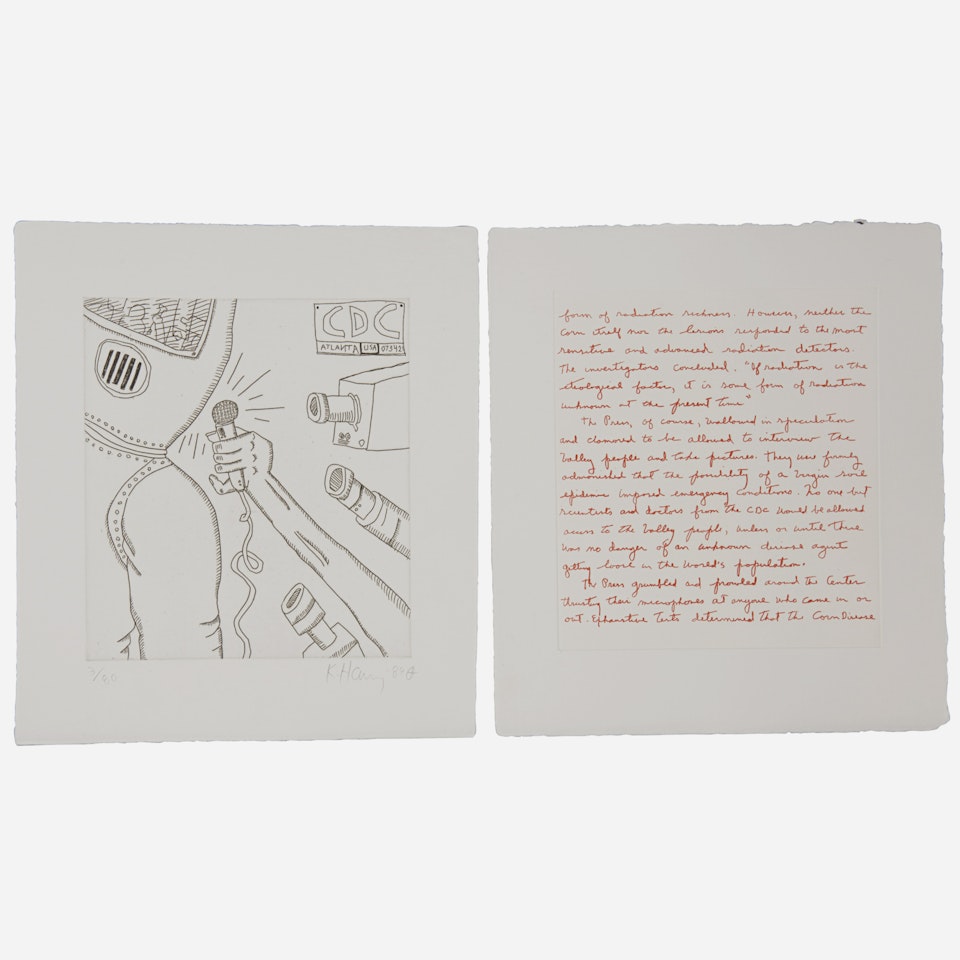 CDC
ATLANTA USA 073421
K. Haring '89
form of radiation sickness. However, neither the
corn itself nor the lesions responded to the most
sensitive and advanced radiation detectors.
The investigators concluded. "If radiation is the
etiological factor, it is some form of radiation
unknown at the present time"
The Press, of course, wallowed in speculation
and clamored to be allowed to interview the
Valley people and take pictures. They were firmly
admonished that the possibility of a Virgin Soil
epidemic imposed emergency conditions. No one but
scientists and doctors from the CDC would be allowed
access to the Valley people, unless or until there
was no danger of an unknown disease agent
getting loose in the World's population.
The Press grumbled and prowled around the Center
thrusting their microphones at anyone who came in or
out. Exhaustive Tests determined that the Corn Disease